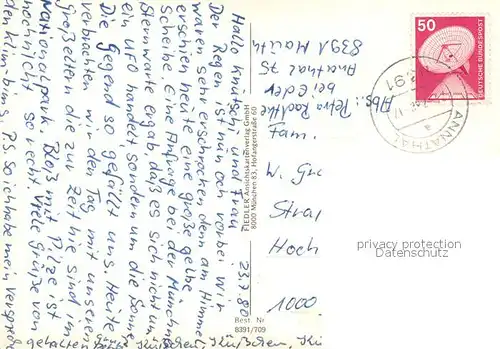 23.7.80
Hallo Christel und Frau
Der Regen ist nun vorbei. Wir
waren sehr erschrocken denn am Himmel
erschien heute eine große gelbe
Scheibe. Eine Anfrage bei der Münchner
Sternwarte ergab, daß es sich nicht um
ein UFO handelt, sondern um die Sonne.
Die Gegend so gefällt uns. Heute
verbrachten wir den Tag mit unseren
Großeltern die zur Zeit hie sind, im
Nationalpark. Bloß mit Pilze ist
noch nicht so recht. Viele Grüße von
den P.S. So ich habe mein Versprechen
gehalten Küßchen, Küßchen, Kü
FIEDLER Ansichtskartenverlag GmbH
8000 München 83, Hofangerstraße 60
Best. Nr.
8391/709
Abs.: Petra
bei Eder
Annathal 75
8391 Mauth
Fam.
W. Gra
Straß
Hoch
1000
50
DEUTSCHE BUNDESPOST
8391
ANNATHAL
a
privacy protection
DATENSCHUTZ